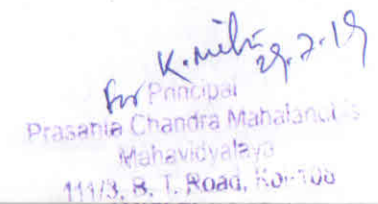 for K. Mitra
29.7.19
Principal
Prasanta Chandra Mahalanobis
Mahavidyalaya
111/3, B. T. Road, Kol-108